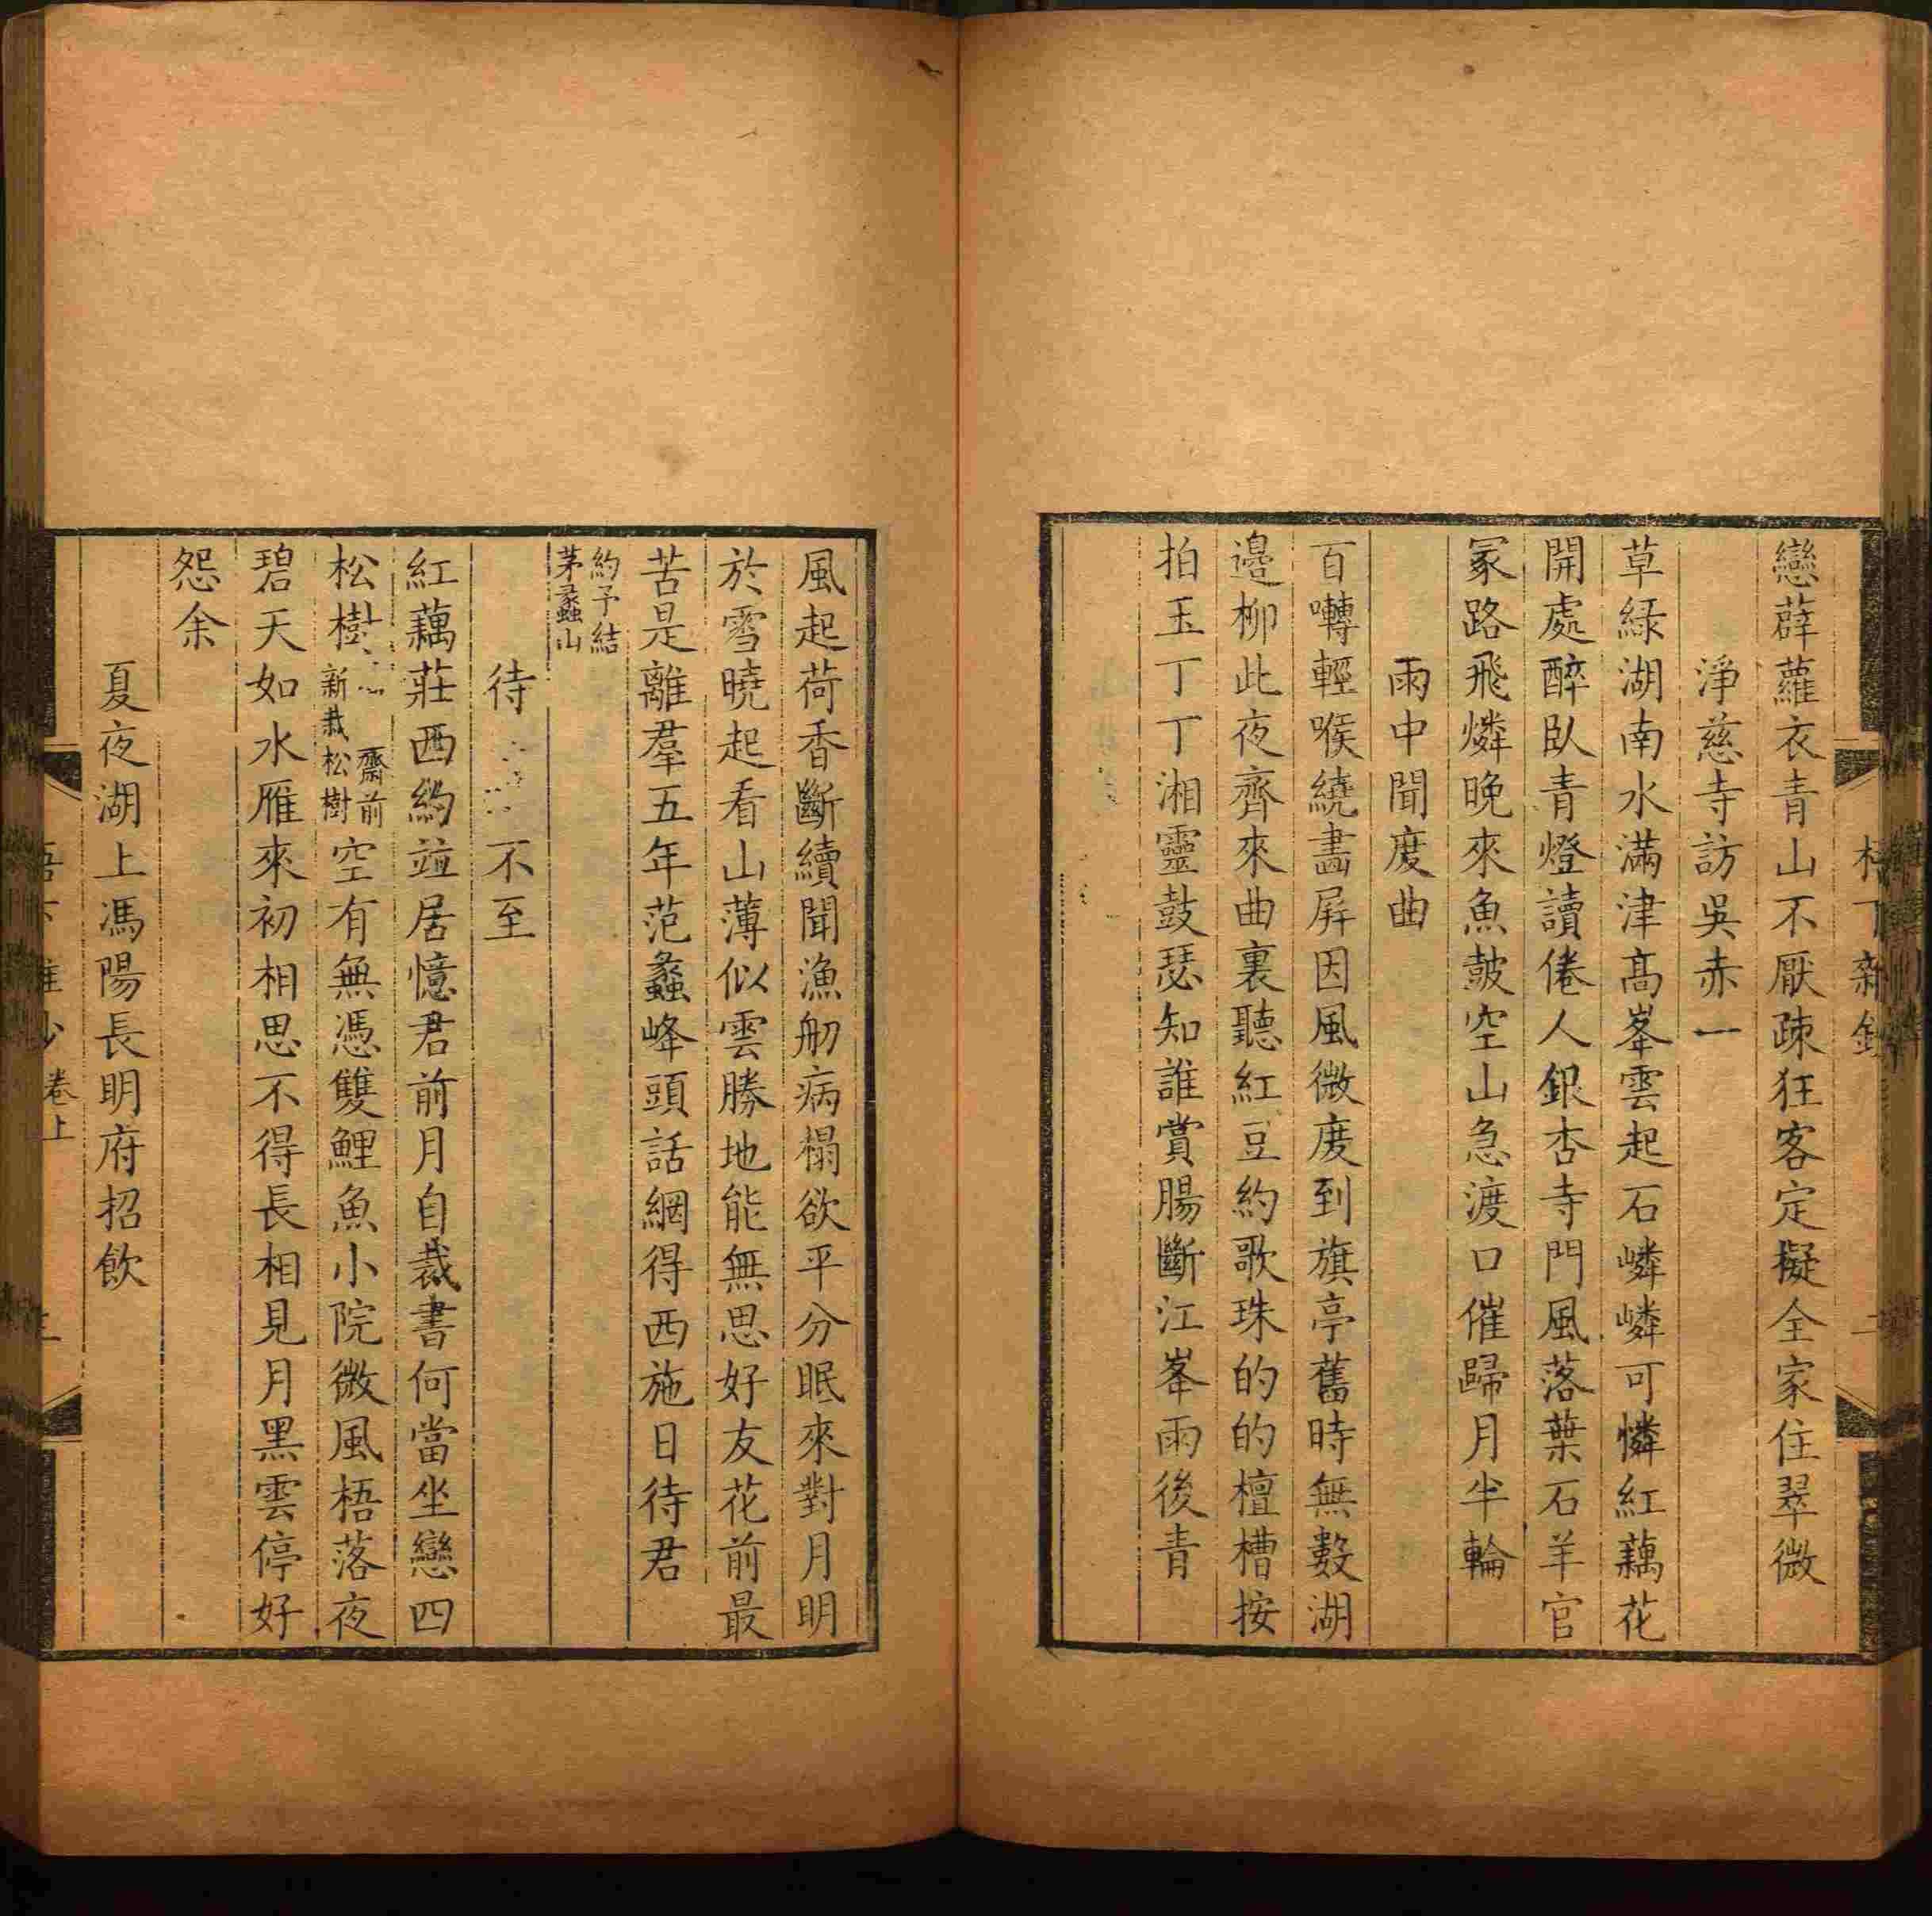 戀薜蘿衣青山不厭疎狂客定擬全家住翠微
淨慈寺訪吳赤一
草綠湖南水滿津高峯雲起石嶙嶙可憐紅藕花
開處醉臥青燈讀倦人銀杏寺門風落葉石羊官
冢路飛燐晚來魚皷空山急渡口催歸月半輪
雨中聞度曲
百囀輕喉繞畵屏因風微度到旗亭舊時無數湖
邉柳此夜齊來曲裏聽紅豆約歌珠的的檀槽按
拍玉丁丁湘靈鼓瑟知誰賞腸斷江峯雨後青
風起荷香斷續聞漁舠病榻欲平分眠來對月明
於雪曉起看山薄似雲勝地能無思好友花前最
苦是離羣五年范蠡峰頭話網得西施日待君
約予結
茅蠡山
待
不至
紅藕莊西約竝居憶君前月自裁書何當坐戀四
松樹
齋前
新栽松樹
空有無憑雙鯉魚小院微風梧落夜
碧天如水雁來初相思不得長相見月黑雲停好
怨余
夏夜湖上馮陽長明府招飲
卷上